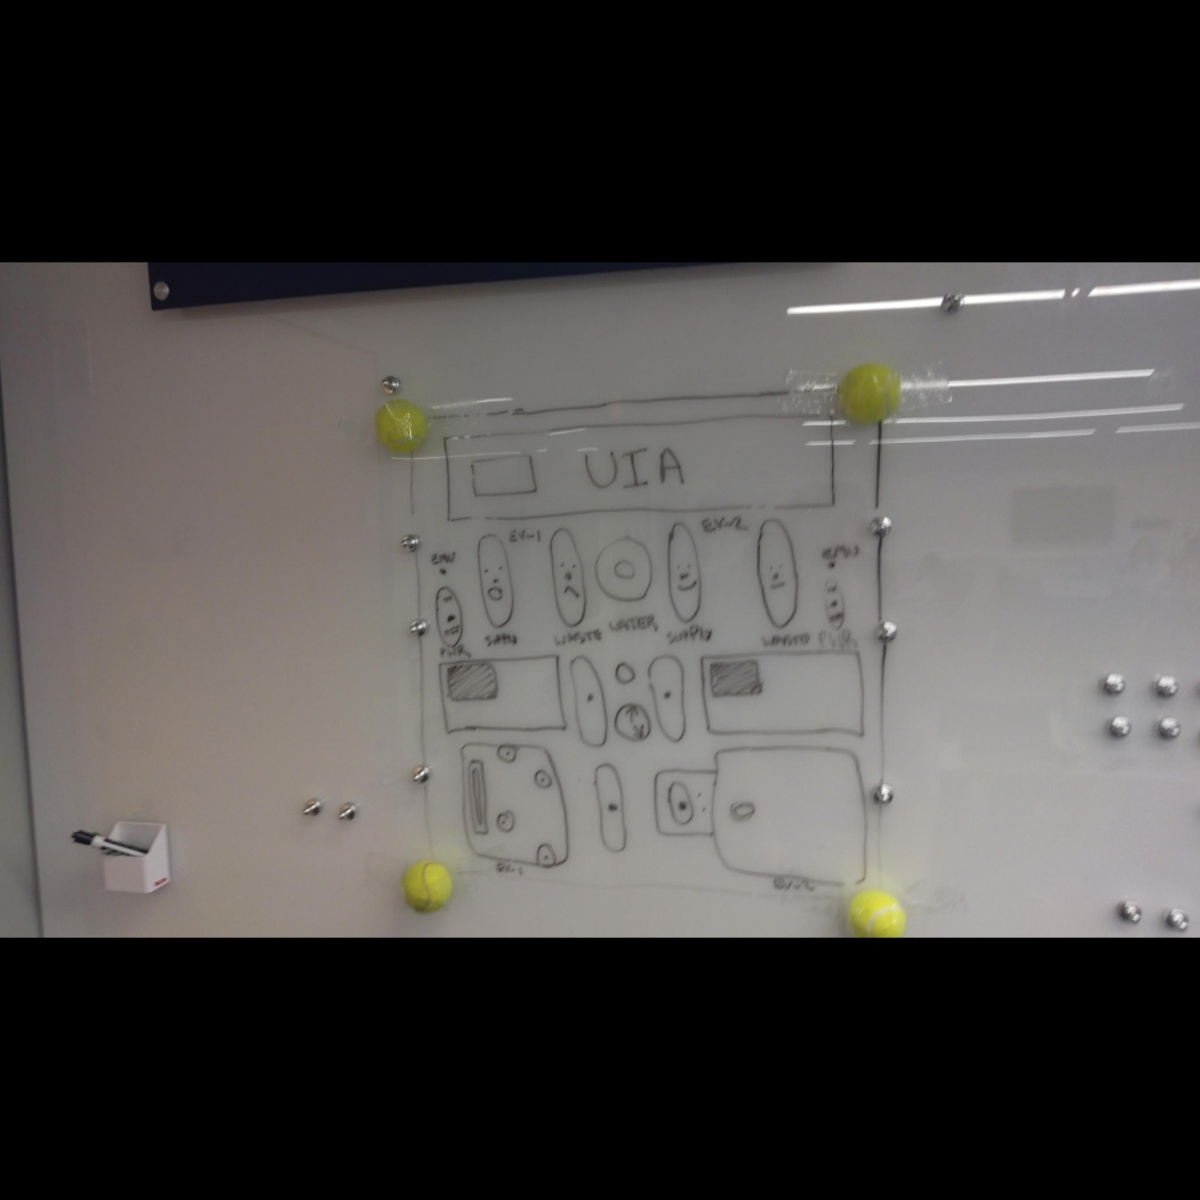 UIA
EV-1 EV-2
EMU EMU
SUPPLY WASTE WATER SUPPLY WASTE PWR
PWR
EV-1 EV-2